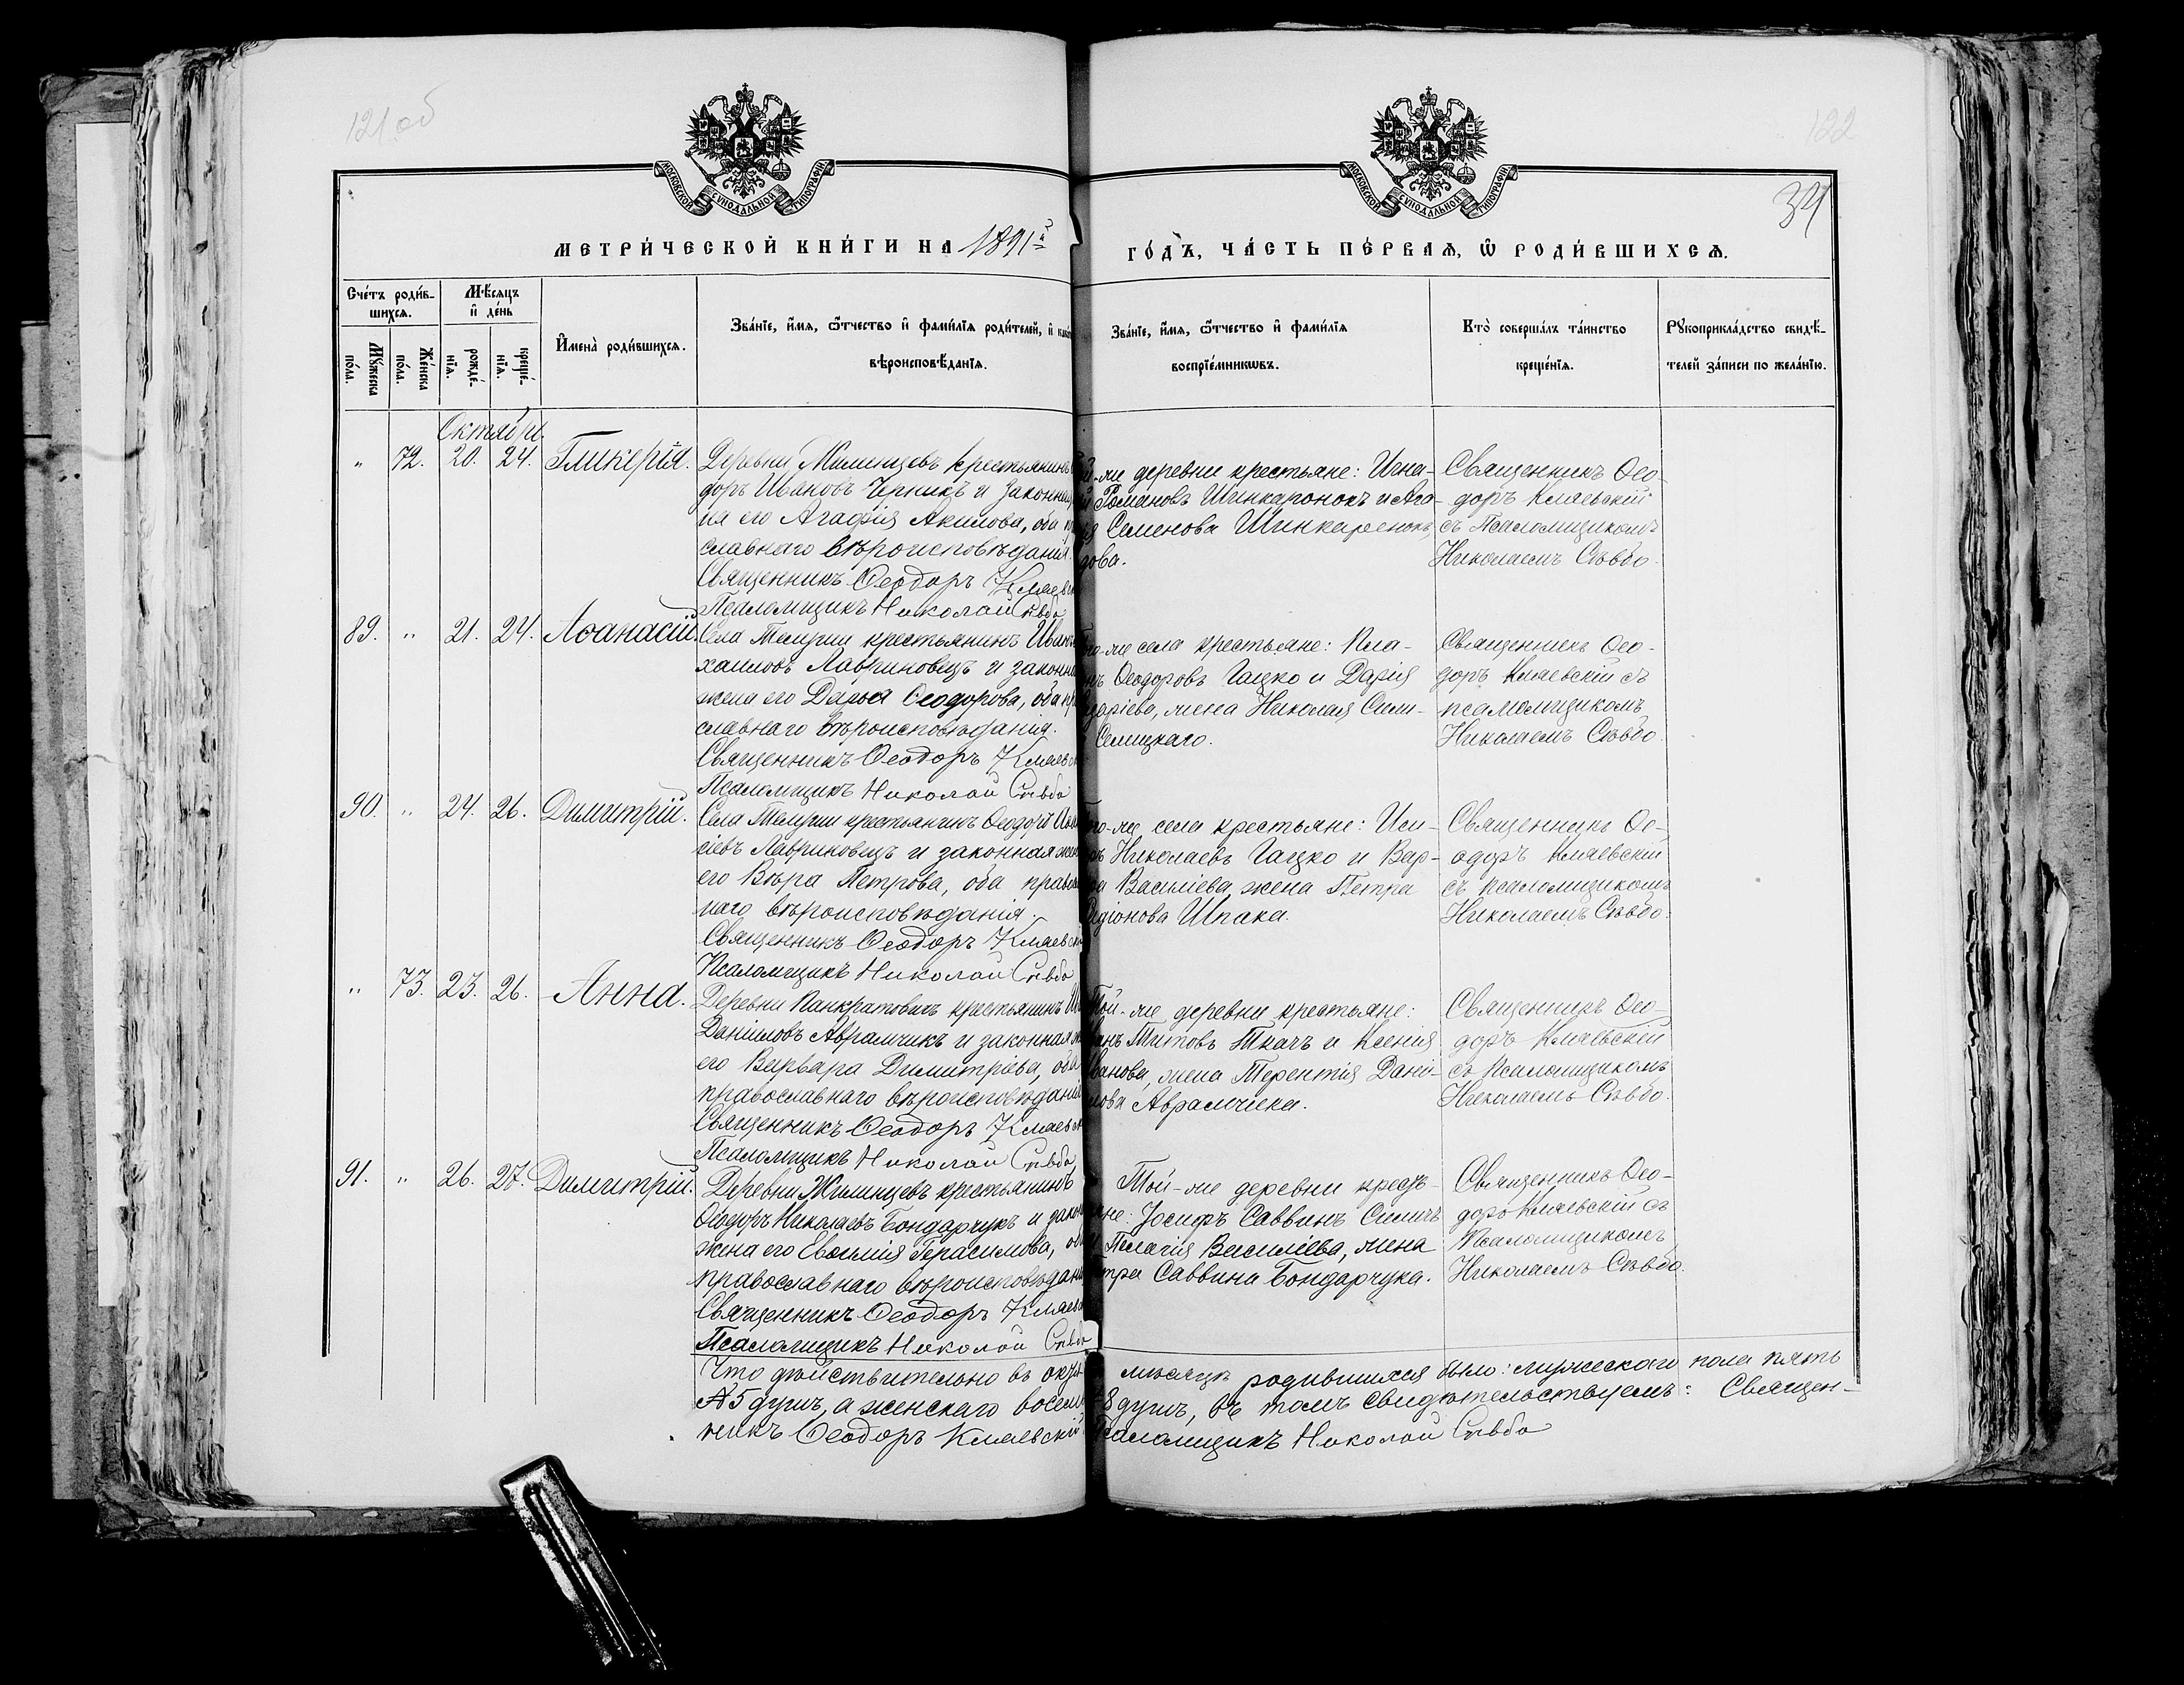 121 об
122
34
МОСКОВСКОЙ СУНОДАЛЬНОЙ ТИПОГРАФІИ
МОСКОВСКОЙ СУНОДАЛЬНОЙ ТИПОГРАФІИ
МЕТРИ́ЧЕСКОЙ КНИ́ГИ НА 1891й
ГО́ДЪ, ЧА́СТЬ ПЕ́РВАѦ, Ѡ҆ РОДИ́ВШИХСѦ.
Сче́тъ роди́в-
шихсѧ.
Мѣ́сѧцъ
и҆ де́нь
Мꙋ́жеска
по́ла.
Же́нска
по́ла.
рожде́-
нїѧ.
креще́-
нїѧ.
И҆мена̀ роди́вшихсѧ.
Зва́нїе, и҆́мѧ, ѻ҆́тчество и҆ фами́лїѧ роди́телей, и҆
вѣроисповѣ́данїѧ.
Зва́нїе, и҆́мѧ, ѻ҆́тчество и҆ фами́лїѧ
воспрїе́мникѡвъ.
Кто̀ соверша́лъ та́инство
креще́нїѧ.
Рꙋкоприкла́дство свидѣ́-
телей за́писи по жела́нїю.
Октября.
" 72. 20. 24. Гликерія.
Деревни Жилинцевъ крестьянинъ
доръ Ивановъ Черникъ и законная
на его Агафія Акилова, оба
славнаго вѣроисповѣданія.
Священникъ Ѳеодоръ Кмаев
Псаломщикъ Николай Сѣвбо
й-же деревни крестьяне: Игна-
й Романовъ Шинкаронокъ и Ага-
ія Семенова Шинкаренокъ,
дова.
Священникъ Ѳео-
доръ Кмаевскій
съ Псаломщикомъ
Николаемъ Сѣвбо.
89. " 21. 24. Аѳанасій.
Села крестьянинъ Иванъ
хаиловъ Лавриновецъ и законная
жена его Дарья Ѳеодорова, оба
славнаго вѣроисповѣданія.
Священникъ Ѳеодоръ Кмаевс
Псаломщикъ Николай Сѣвбо
го-же села крестьяне: Пла-
нъ Ѳеодоровъ Гацко и Дарія
заріева, жена Николая Сили-
Селицкаго.
Священникъ Ѳео-
доръ Кмаевскій съ
псаломщикомъ
Николаемъ Сѣвбо.
90. " 24. 26. Димитрій.
Села крестьянинъ Ѳеодоръ
сіевъ Лавриновецъ и законная жена
его Вѣра Петрова, оба правос
наго вѣроисповѣданія.
Священникъ Ѳеодоръ Кмаевскій
Псаломщикъ Николай Сѣвбо
го-же села крестьяне: Иси-
ръ Николаевъ Гацко и Вар-
ра Василіева жена Петра
діонова Шпака.
Священникъ Ѳе-
одоръ Кмаевскій
съ псаломщикомъ
Николаемъ Сѣвбо.
" 73. 23. 26. Анна.
Деревни Панкратовичъ крестьянинъ
Даніиловъ Аврамчикъ и законная
его Варвара Димитріева, оба
православнаго вѣроисповѣданія
Священникъ Ѳеодоръ Кмаевск
Псаломщикъ Николай Сѣвбо
Той-же деревни крестьяне:
ванъ Титовъ Ткачъ и Ксенія
Иванова, жена Терентія Дані-
лова Аврамчика.
Священникъ Ѳео-
доръ Кмаевскій
съ Псаломщикомъ
Николаемъ Сѣвбо.
91. " 26. 27. Димитрій.
Деревни Жилинцевъ крестьянинъ
Ѳеодоръ Николаевъ Бондарчукъ и закон
жена его Евѳимія Герасимова, оба
православнаго вѣроисповѣдані
Священникъ Ѳеодоръ Кмаев
Псаломщикъ Николай Сѣвбо
Той-же деревни кресть-
яне: Іосифъ Саввинъ Силичъ
и Пелагія Василіева, жена
тра Саввина Бондарчука.
Священникъ Ѳео-
доръ Кмаевскій съ
Псаломщикомъ
Николаемъ Сѣвбо.
Что дѣйствительно въ октя мѣсяцѣ родившихся было: мужескаго пола пять
№ 5 душъ, а женскаго восемь 8 душъ, въ томъ свидѣтельствуемъ: Священ-
никъ Ѳеодоръ Кмаевскій Псаломщикъ Николай Сѣвбо